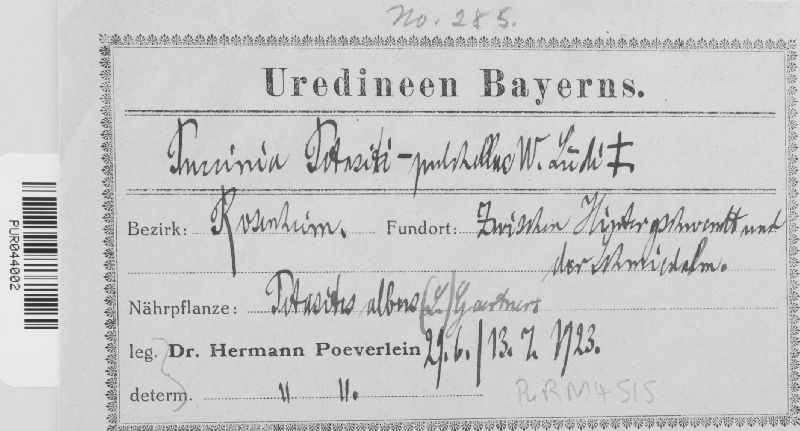 No. 285.
Uredineen Bayerns.
Puccinia Petasiti-pulchellae W. Lüdi ‡
Bezirk: Rosenheim. Fundort: Zwischen Hintergschwendt und
der Schmidalm.
Nährpflanze: Petasites albus (L.) Gaertner
leg. Dr. Hermann Poeverlein 29.6./13.7.1923.
determ. " ".
PUR N14515
PUR044002